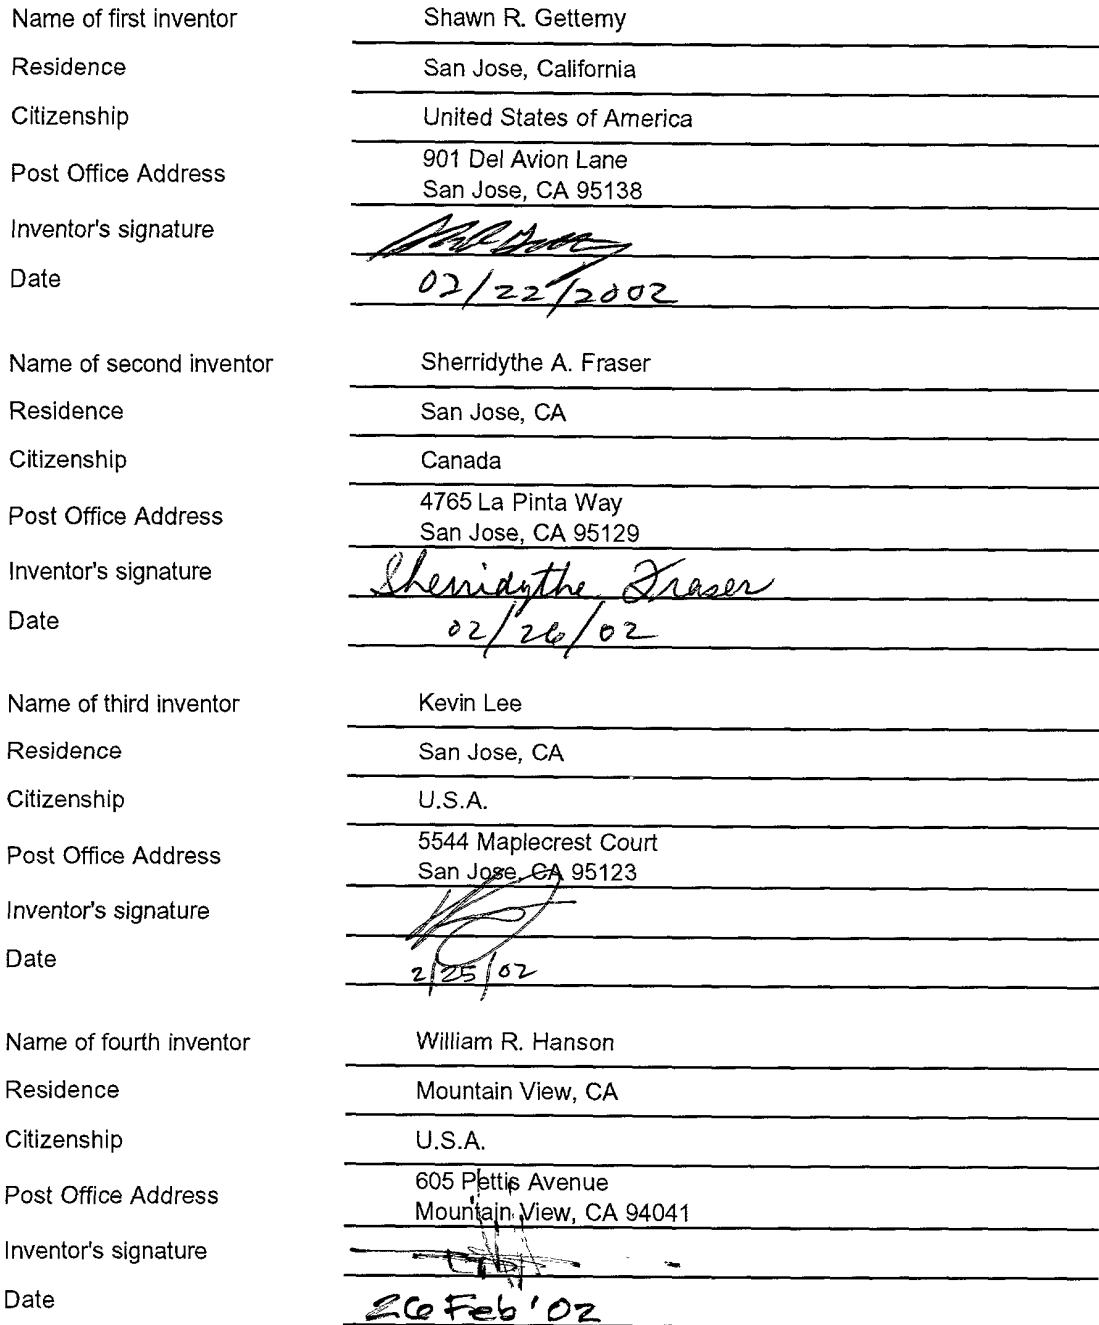 Name of first inventor Shawn R. Gettemy
Residence San Jose, California
Citizenship United States of America
Post Office Address 901 Del Avion Lane
San Jose, CA 95138
Inventor's signature
Date 02/22/2002
Name of second inventor Sherridythe A. Fraser
Residence San Jose, CA
Citizenship Canada
Post Office Address 4765 La Pinta Way
San Jose, CA 95129
Inventor's signature Sherridythe Fraser
Date 02/26/02
Name of third inventor Kevin Lee
Residence San Jose, CA
Citizenship U.S.A.
Post Office Address 5544 Maplecrest Court
San Jose, CA 95123
Inventor's signature
Date 2/25/02
Name of fourth inventor William R. Hanson
Residence Mountain View, CA
Citizenship U.S.A.
Post Office Address 605 Pettis Avenue
Mountain View, CA 94041
Inventor's signature
Date 26 Feb '02